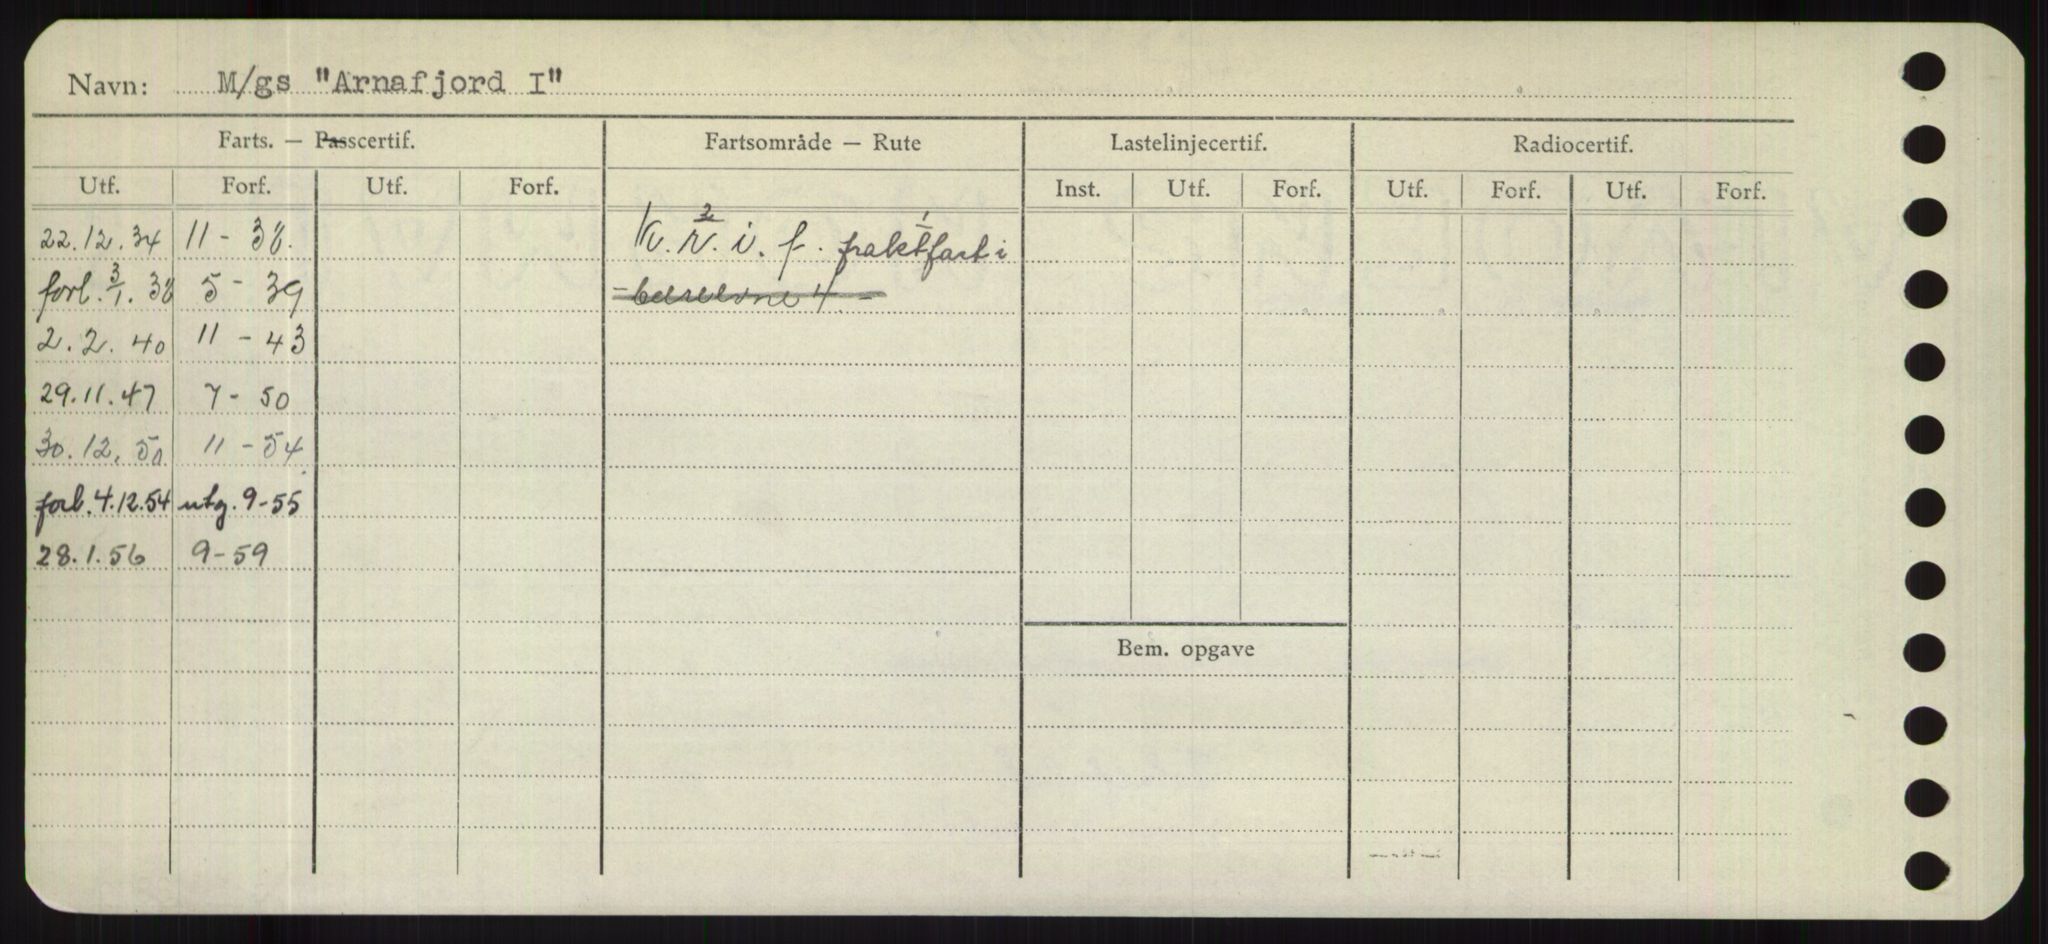 Navn: M/gs "Arnafjord I"
Farts. — Passcertif. Fartsområde — Rute Lastelinjecertif. Radiocertif.
Utf. Forf. Utf. Forf. Inst. Utf. Forf. Utf. Forf. Utf. Forf.
22.12.34 11 - 38. K. i. f. fraktfart i
forl. 3/1. 38 5 - 39
2. 2. 40 11 - 43
29.11.47 7 - 50
30.12.50 11 - 54
forl. 4.12.54 utg. 9-55
28.1.56 9-59
Bem. opgave